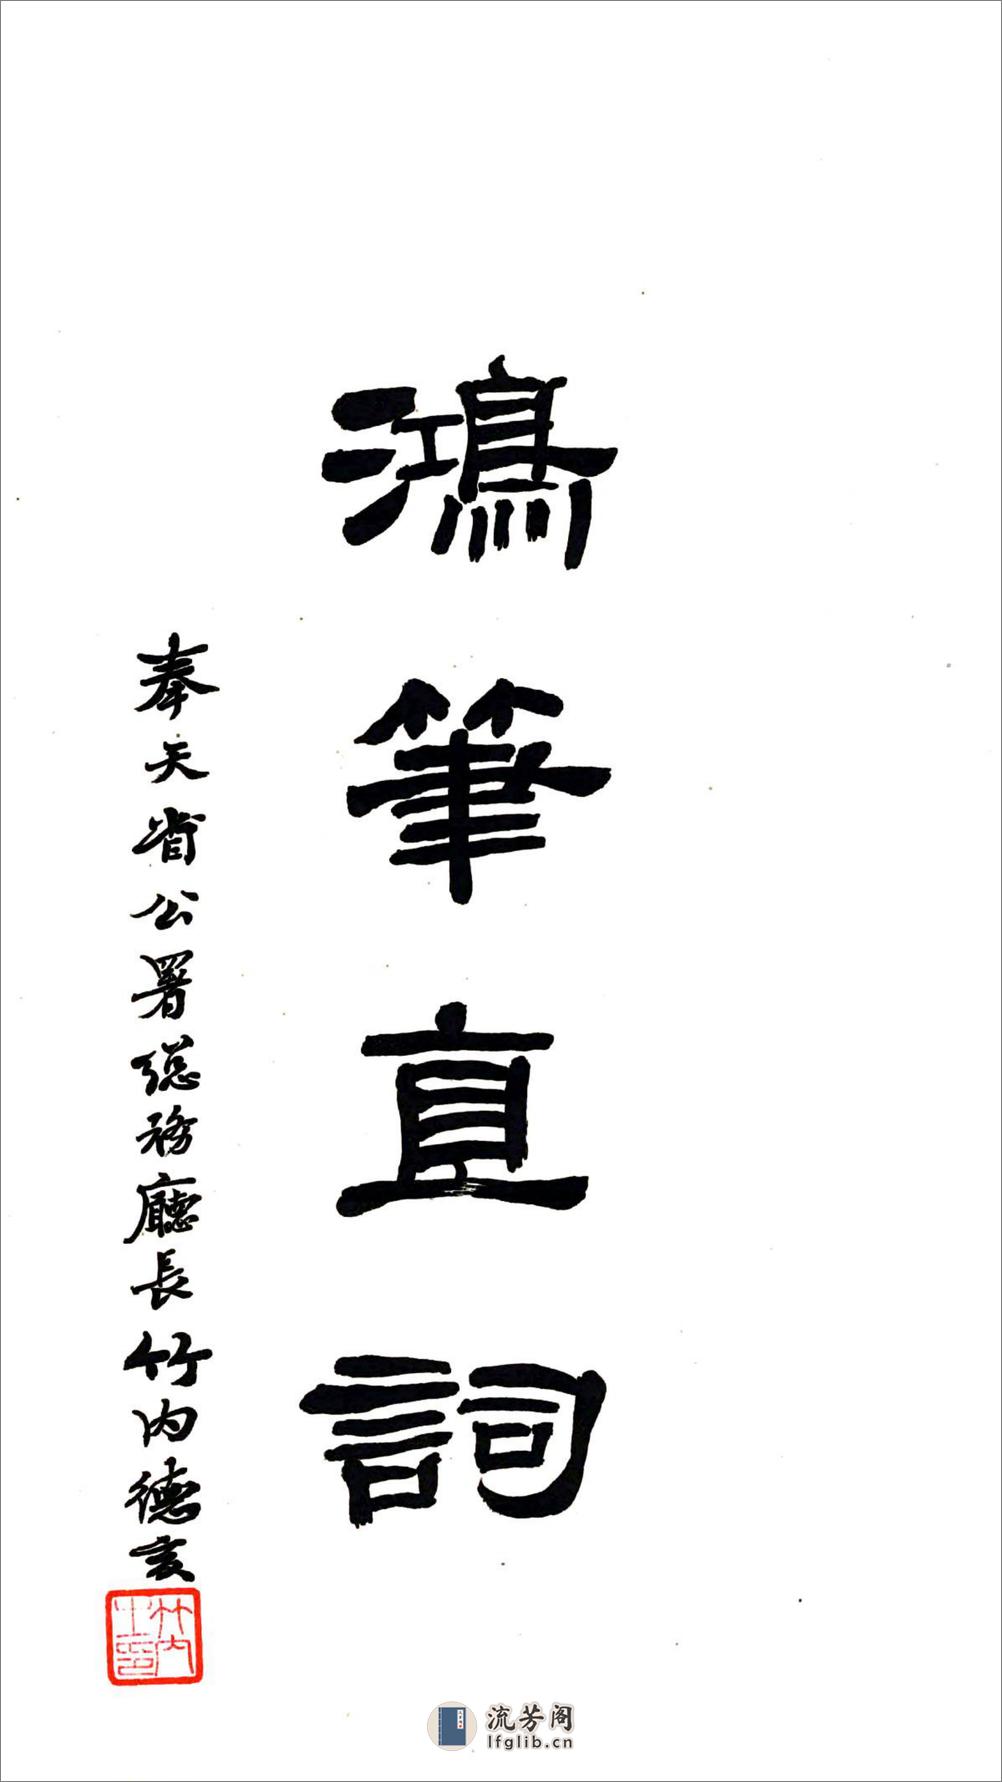 鴻筆直詞
奉天省公署總務廳長竹內德亥
竹內之印
流芳阁
lfglib.cn